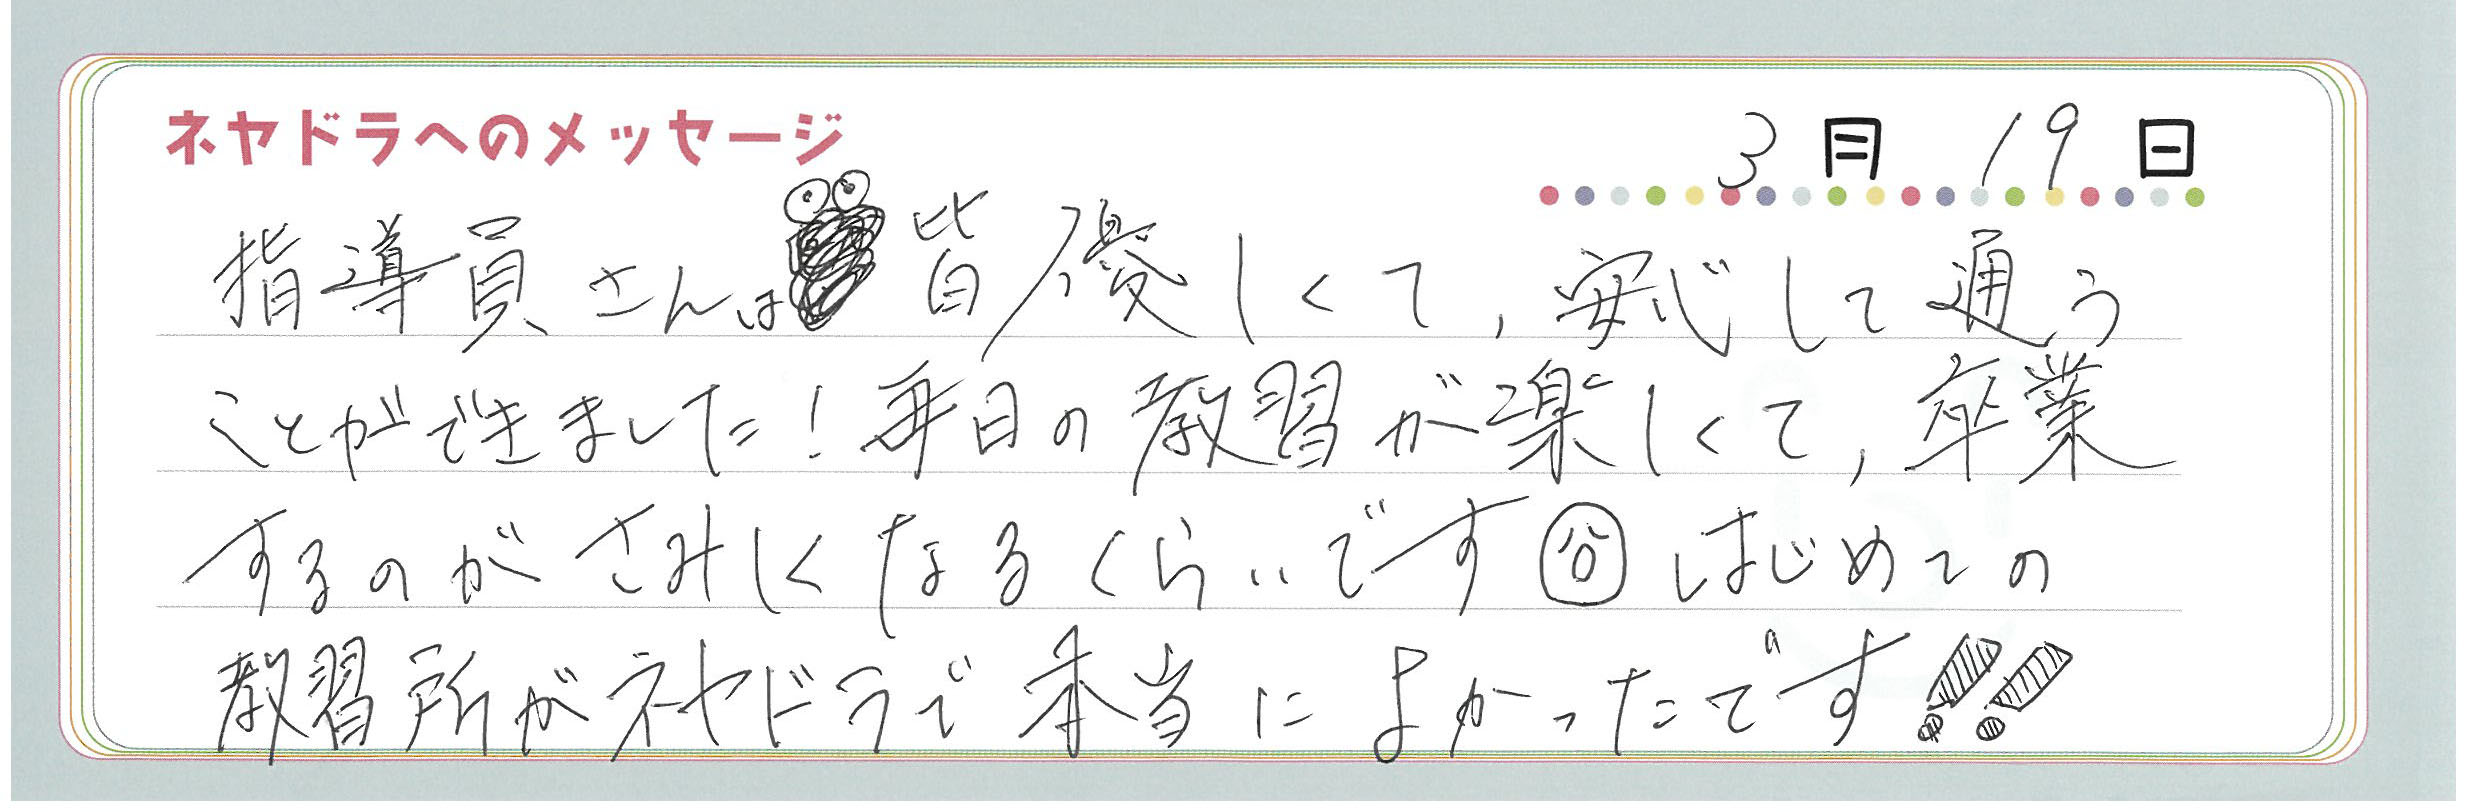 ネヤドラへのメッセージ
3月19日
指導員さんは皆優しくて、安心して通う
ことができました!毎日の教習が楽しくて、卒業
するのがさみしくなるくらいですはじめての
教習所がネヤドラで本当によかったです!!